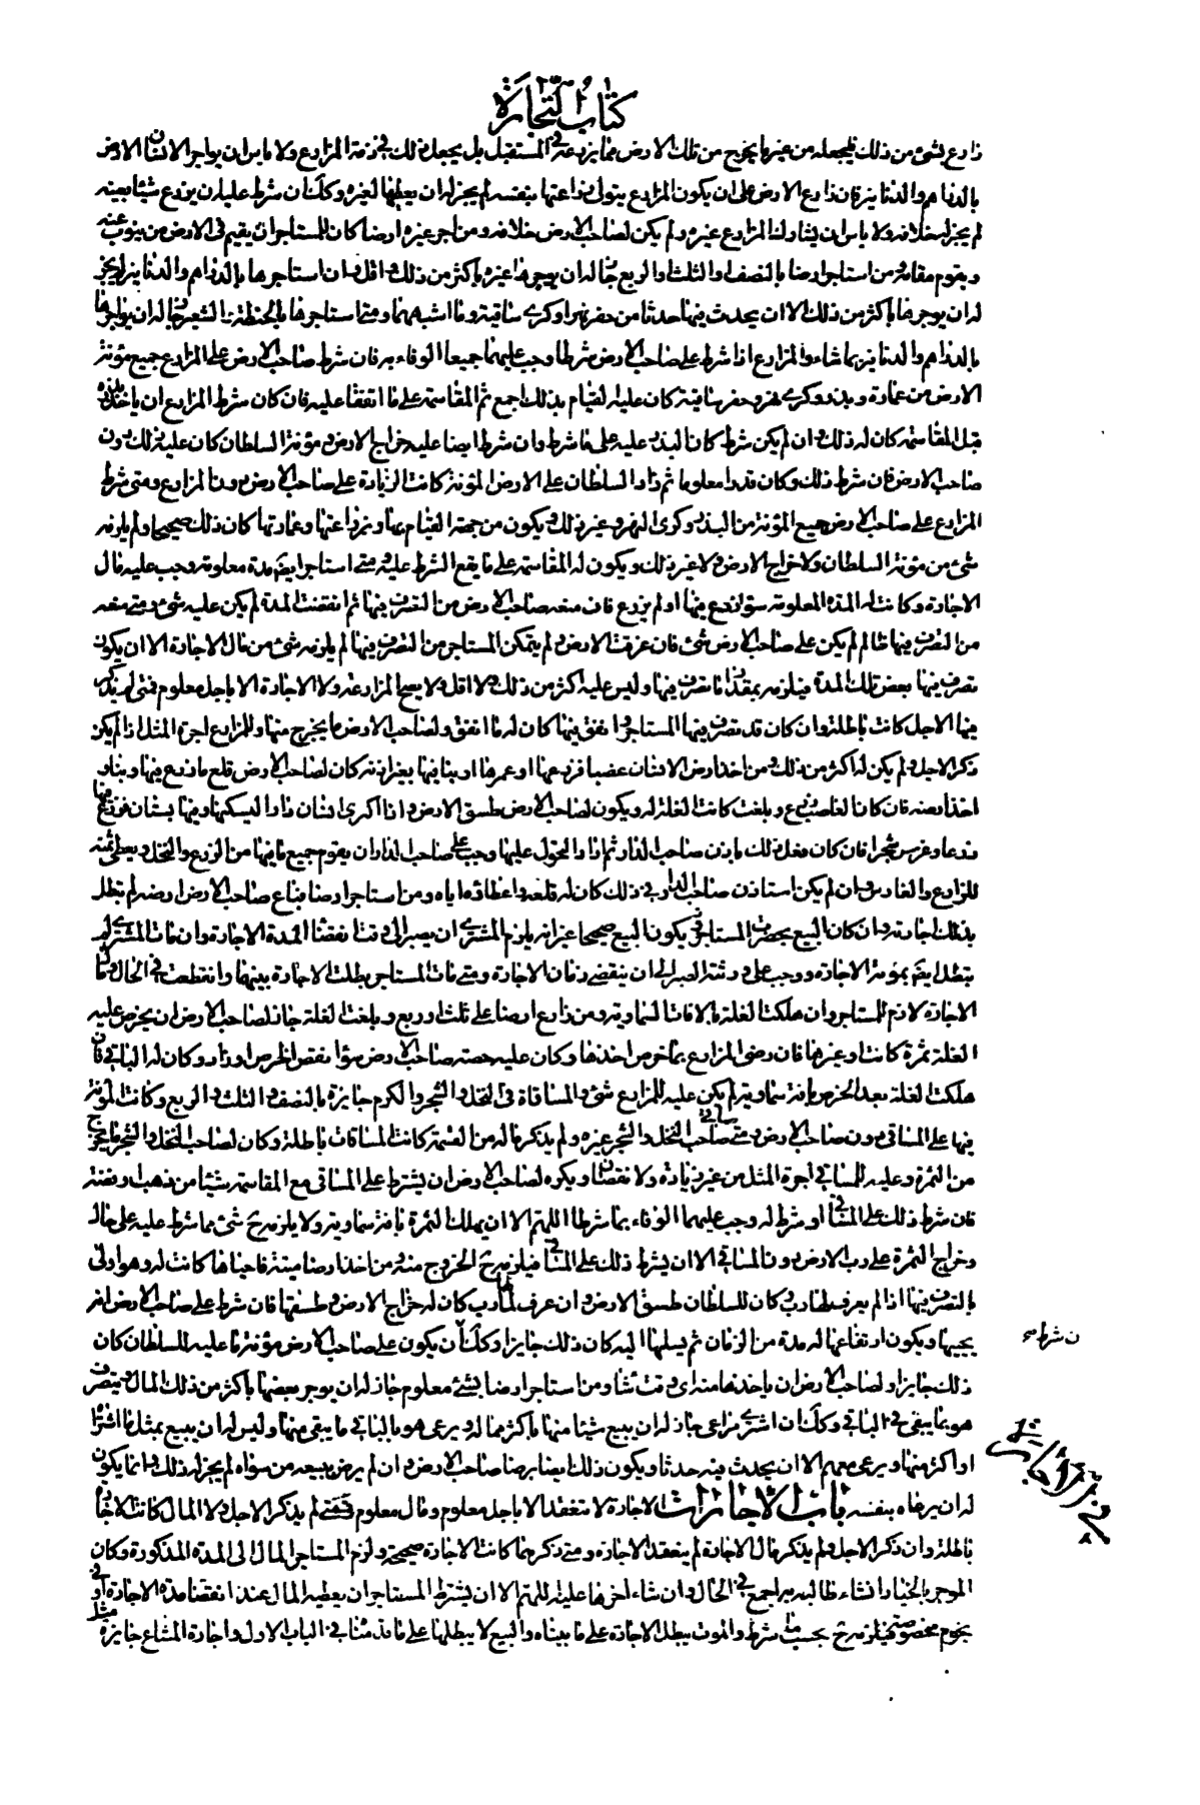 كتاب التجارة
زارع بشئ من ذلك فليجعله من غير ما يخرج من تلك الارض مما يزرعه في المستقبل بل يجعل ذلك في ذمة المزارع ولا باس ان يواجر الانسان الارض
بالدراهم والدنانير فان زارع الارض على ان يكون المزارع يتولى زراعتها بنفسه لم يجز له ان يعطيها لغيره وكك ان شرط عليه ان يزرع شيئا بعينه
لم يجز له خلافه ولا باس ان يشارك المزارع غيره ولم يكن لصاحب الارض خلافه ومن اجر غيره ارضا كان للمستاجر ان يقيم في الارض من ينوب عنه
ويقوم مقامه ومن استاجر ارضا بالنصف او الثلث او الربع جاز له ان يوجرها غيره باكثر من ذلك واقل وان استاجرها بالدراهم والدنانير لم يجز
له ان يوجرها باكثر من ذلك الا ان يحدث فيها حدثا من حفر نهر او كرى ساقية وما اشبههما ومتى استاجرها بالحنطة والشعير جاز له ان يواجرها
بالدراهم والدنانير بما شاء والمزارع اذا شرط على صاحب الارض شرطا وجب عليهما جميعا الوفاء به فان شرط صاحب الارض على المزارع جميع مؤنة
الارض من عمارة وبذر وكرى نهر وحفر ساقية كان عليه القيام بذلك اجمع ثم المقاسمة على ما اتفقا عليه فان كان شرط المزارع ان ياخذ بذره
قبل المقاسمة كان له ذلك وان لم يكن شرط كان البذر عليه على ما شرط وان شرط ايضا عليه خراج الارض ومؤنة السلطان كان عليه ذلك دون
صاحب الارض فان شرط ذلك وكان قدرا معلوما ثم زاد السلطان على الارض المؤنة كانت الزيادة على صاحب الارض دون المزارع ومتى شرط
المزارع على صاحب الارض جميع المؤنة من البذر وكرى النهر وغير ذلك ويكون من جهته القيام بها وزراعتها وعمارتها كان ذلك صحيحا ولم يلزمه
شئ من مؤنة السلطان ولا خراج الارض ولا غير ذلك ويكون له المقاسمة على ما يقع الشرط عليه ومتى استاجرا بض مدة معلومة وجب عليه مال
الاجارة وكانت له المدة المعلومة سواء زرع فيها او لم يزرع فان منعه صاحب الارض من التصرف فيها ثم انقضت المدة لم يكن عليه شئ ومتى منعه
من التصرف فيها ظالم لم يكن على صاحب الارض شئ فان غرقت الارض ولم يتمكن المستاجر من التصرف فيها لم يلزمه شئ من مال الاجارة الا ان يكون
تصرف فيها بعض تلك المدة فيلزمه بمقدار ما تصرف فيها وليس عليه اكثر من ذلك ولا اقل ولا يصح المزارعة ولا الاجارة الا باجل معلوم فمتى لم يذكر
فيها الاجل كانت باطلة وان كان قد تصرف فيها المستاجر وانفق فيها كان له ما انفق ولصاحب الارض ما يخرج منها وللمزارع اجرة المثل اذا لم يكن
ذكر الاجل ولم يكن له اكثر من ذلك ومن اخذ ارض الانسان غصبا فزرعها او عمرها او بنا فيها بغير اذنه كان لصاحب الارض قلع ما زرع فيها وبناء و
اخذ ارضه فان كان الغاصب زرع وبلغت كانت الغلة له ويكون لصاحب الارض طسق الارض واذا اكرى انسان دارا ليسكنها وفيها بستان فزرع فيها
زرعا وغرس شجرا فان كان فعل ذلك باذن صاحب الدار ثم اراد التحول عليها وجب على صاحب الدار ان يقوم جميع ما فيها من الزرع والنخل ويعطى ثمنه
للزارع والغارس وان لم يكن استاذن صاحب الدار في ذلك كان له قلعه واعطاؤه اياه ومن استاجر ارضا فباع صاحب الارض ارضه لم يبطل
بذلك اجارته وان كان البيع بحضرة المستاجر يكون البيع صحيحا غير انه يلزم المشترى ان يصبر الى وقت انقضاء المدة الاجارة وان مات المشترى لم
يبطل ايض بموته الاجارة ووجب على ورثته الصبر الى ان ينقضى زمان الاجارة ومتى مات المستاجر بطلت الاجارة بينهما وانقطعت في الحال ومال
الاجارة لازم للمستاجر وان هلكت الغلة بالافات السماوية ومن زارع ارضا على ثلث او ربع وبلغت الغلة جاز لصاحب الارض ان يخرص عليه
الغلة ثمرة كانت او غيرها فان رضى المزارع بما خرص اخذها وكان عليه حصة صاحب الارض سواء نقص الخرص او زاد وكان له الباقي فان
هلكت الغلة بعد الخرص بافة سماوية لم يكن عليه للمزارع شئ والمساقاة في النخل والشجر والكرم جايزة بالنصف والثلث والربع وكانت المؤنة
فيها على المساقى دون صاحب الارض ومتى ساقى صاحب النخل والشجر غيره ولم يذكر ماله من القسمة كانت المساقات باطلة وكان لصاحب النخل والشجر ما يخرج
من الثمرة وعليه للمساقي اجرة المثل من غير زيادة ولا نقصان ويكره لصاحب الارض ان يشترط على المساقى مع المقاسمة شيئا من ذهب او فضة
فان شرط ذلك على المساقي او شرط له وجب عليهما الوفاء بما شرطا اللهم الا ان يهلك الثمرة بافة سماوية ولا يلزمه ح شئ مما شرط عليه على حال
وخراج الثمرة على رب الارض دون المساقي الا ان يشرط ذلك على المساقي فيلزمه ح الخروج منه ومن اخذ ارضا ميتة فاحياها كانت له وهو اولى
بالتصرف فيها اذا لم يعرف لها رب وكان للسلطان طسق الارض وان عرف لها رب كان له خراج الارض وطسقها فان شرط على صاحب الارض انه
يحييها ويكون ارتفاعها له مدة من الزمان ثم يسلمها اليه كان ذلك جايزا وكك ان يكون على صاحب الارض مؤنة ما عليه للسلطان كان
ن شرط صح
ذلك جايزا ولصاحب الارض ان ياخذها منه اى وقت شاء ومن استاجر ارضا بشئ معلوم جاز له ان يوجر بعضها باكثر من ذلك المال ويتصرف
هو بما يبقى في الباقي وكك ان اشترى مراعى جاز له ان يبيع شيئا منها باكثر مما له ويرعى هو بالباقي ما يبقى منها وليس له ان يبيع بمثل ما اشتراه
او اكثر منها ويرعى معهم الا ان يحدث فيه حدثا ويكون ذلك ايضا برضا صاحب الارض وان لم يرض ببيعه من سواه لم يجز له ذلك وانما يكون
في الاجارات
له ان يرعاه بنفسه باب الاجارات الاجارة لا تنعقد الا باجل معلوم ومال معلوم فمتى لم يذكر الاجل ولا المال كانت الاجارة
باطلة وان ذكر الاجل ولم يذكر مال الاجارة لم ينعقد الاجارة ومتى ذكرهما كانت الاجارة صحيحة ولزم المستاجر المال الى المدة المذكورة وكان
الموجر بالخيار ان شاء طالبه به اجمع في الحال وان شاء اخرها عليه اللهم الا ان يشترط المستاجر ان يعطيه المال عند انقضاء مدة الاجارة او في
نجوم مخصوصة فيلزمه ح بحسب ما شرط والموت يبطل الاجارة على ما بيناه والبيع لا يبطلها على ما قدمنا في الباب الاول واجارة المشاع جايزة مثل